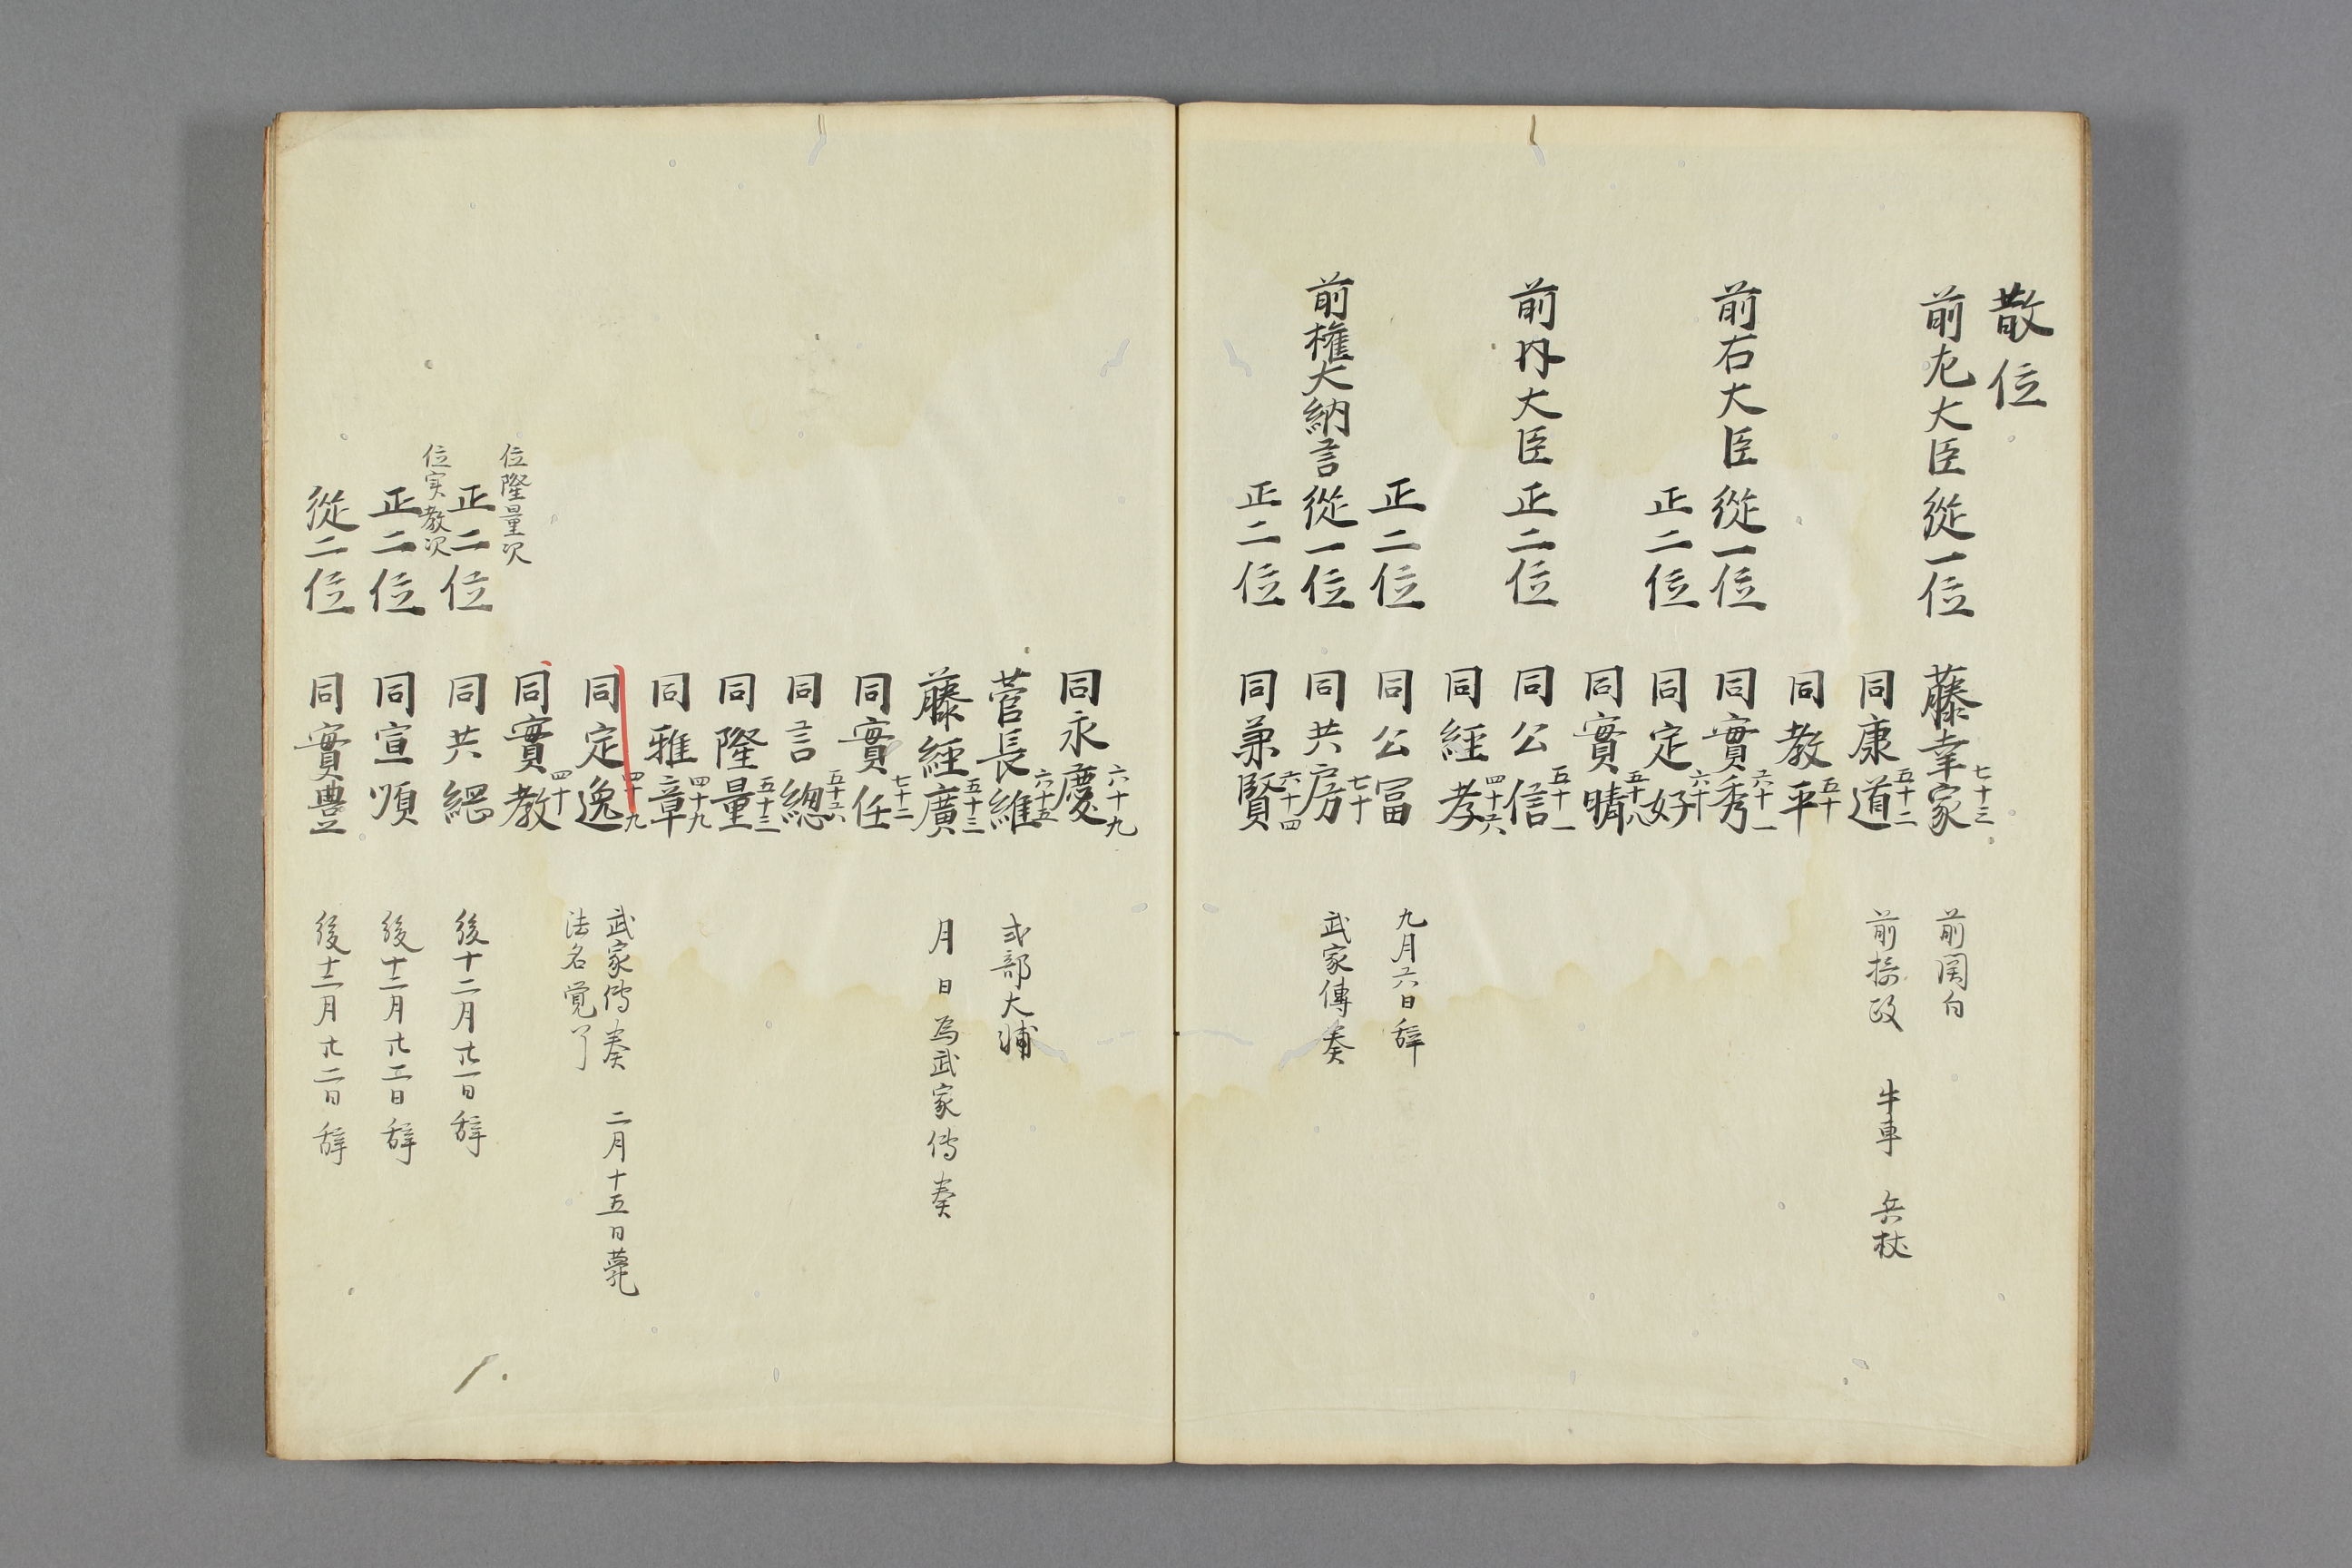 散位
前左大臣 從一位 藤幸家 七十三 前関白
同康道 五十二 前摂政 牛車 兵杖
同教平 五十
前右大臣 從一位 同實秀 六十一
正二位 同定好 六十
同實晴 五十八
前内大臣 正二位 同公信 五十一
同經孝 四十六
正二位 同公冨 九月六日辞
前權大納言 從一位 同共房 七十 武家傳奏
正二位 同兼賢 六十四
同永慶 六十九
菅長維 六十五 式部大輔
藤經廣 五十三 月 日為武家傳奏
同實任 七十二
同言総 五十六
同隆量 五十三
同雅章 四十九
同定逸 四十九 武家傳奏 二月十五日薨
法名覚了
同實教 四十
位隆量次
正二位 同共綱 後十二月廿一日辞
位実教次
正二位 同宣順 後十二月廿二日辞
從二位 同實豊 後十二月廿二日辞